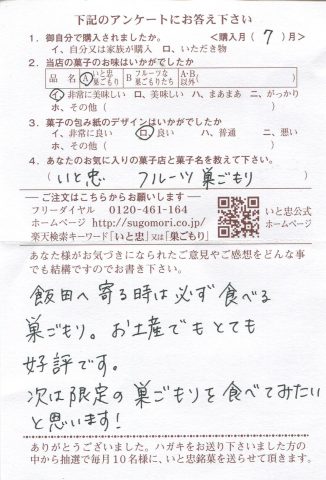 下記のアンケートにお答え下さい
1. 御自分で購入されましたか。 <購入月(7)月>
イ、自分又は家族が購入 ロ、いただき物
2. 当店の菓子のお味はいかがでしたか
品名 A いと忠巣ごもり B フルーツな巣ごもりたち A・B以外( )
イ、非常に美味しい ロ、美味しい ハ、まあまあ ニ、がっかり
ホ、その他( )
3. 菓子の包み紙のデザインはいかがでしたか
イ、非常に良い ロ、良い ハ、普通 ニ、悪い
ホ、その他( )
4. あなたのお気に入りの菓子店と菓子名を教えて下さい。
(いと忠 フルーツ巣ごもり)
ご注文はこちらからお願いします
フリーダイヤル 0120-461-164
ホームページ http://sugomori.co.jp/
楽天検索キーワード「いと忠」又は「巣ごもり」
いと忠公式
ホームページ
あなた様がお気づきになられたご意見やご感想をどんな事
でも結構ですのでお書き下さい。
飯田へ寄る時は必ず食べる
巣ごもり。お土産でもとても
好評です。
次は限定の巣ごもりを食べてみたい
と思います!
ありがとうございました。ハガキをお送り下さいました方の
中から抽選で毎月10名様に、いと忠銘菓を送らせて頂きます。